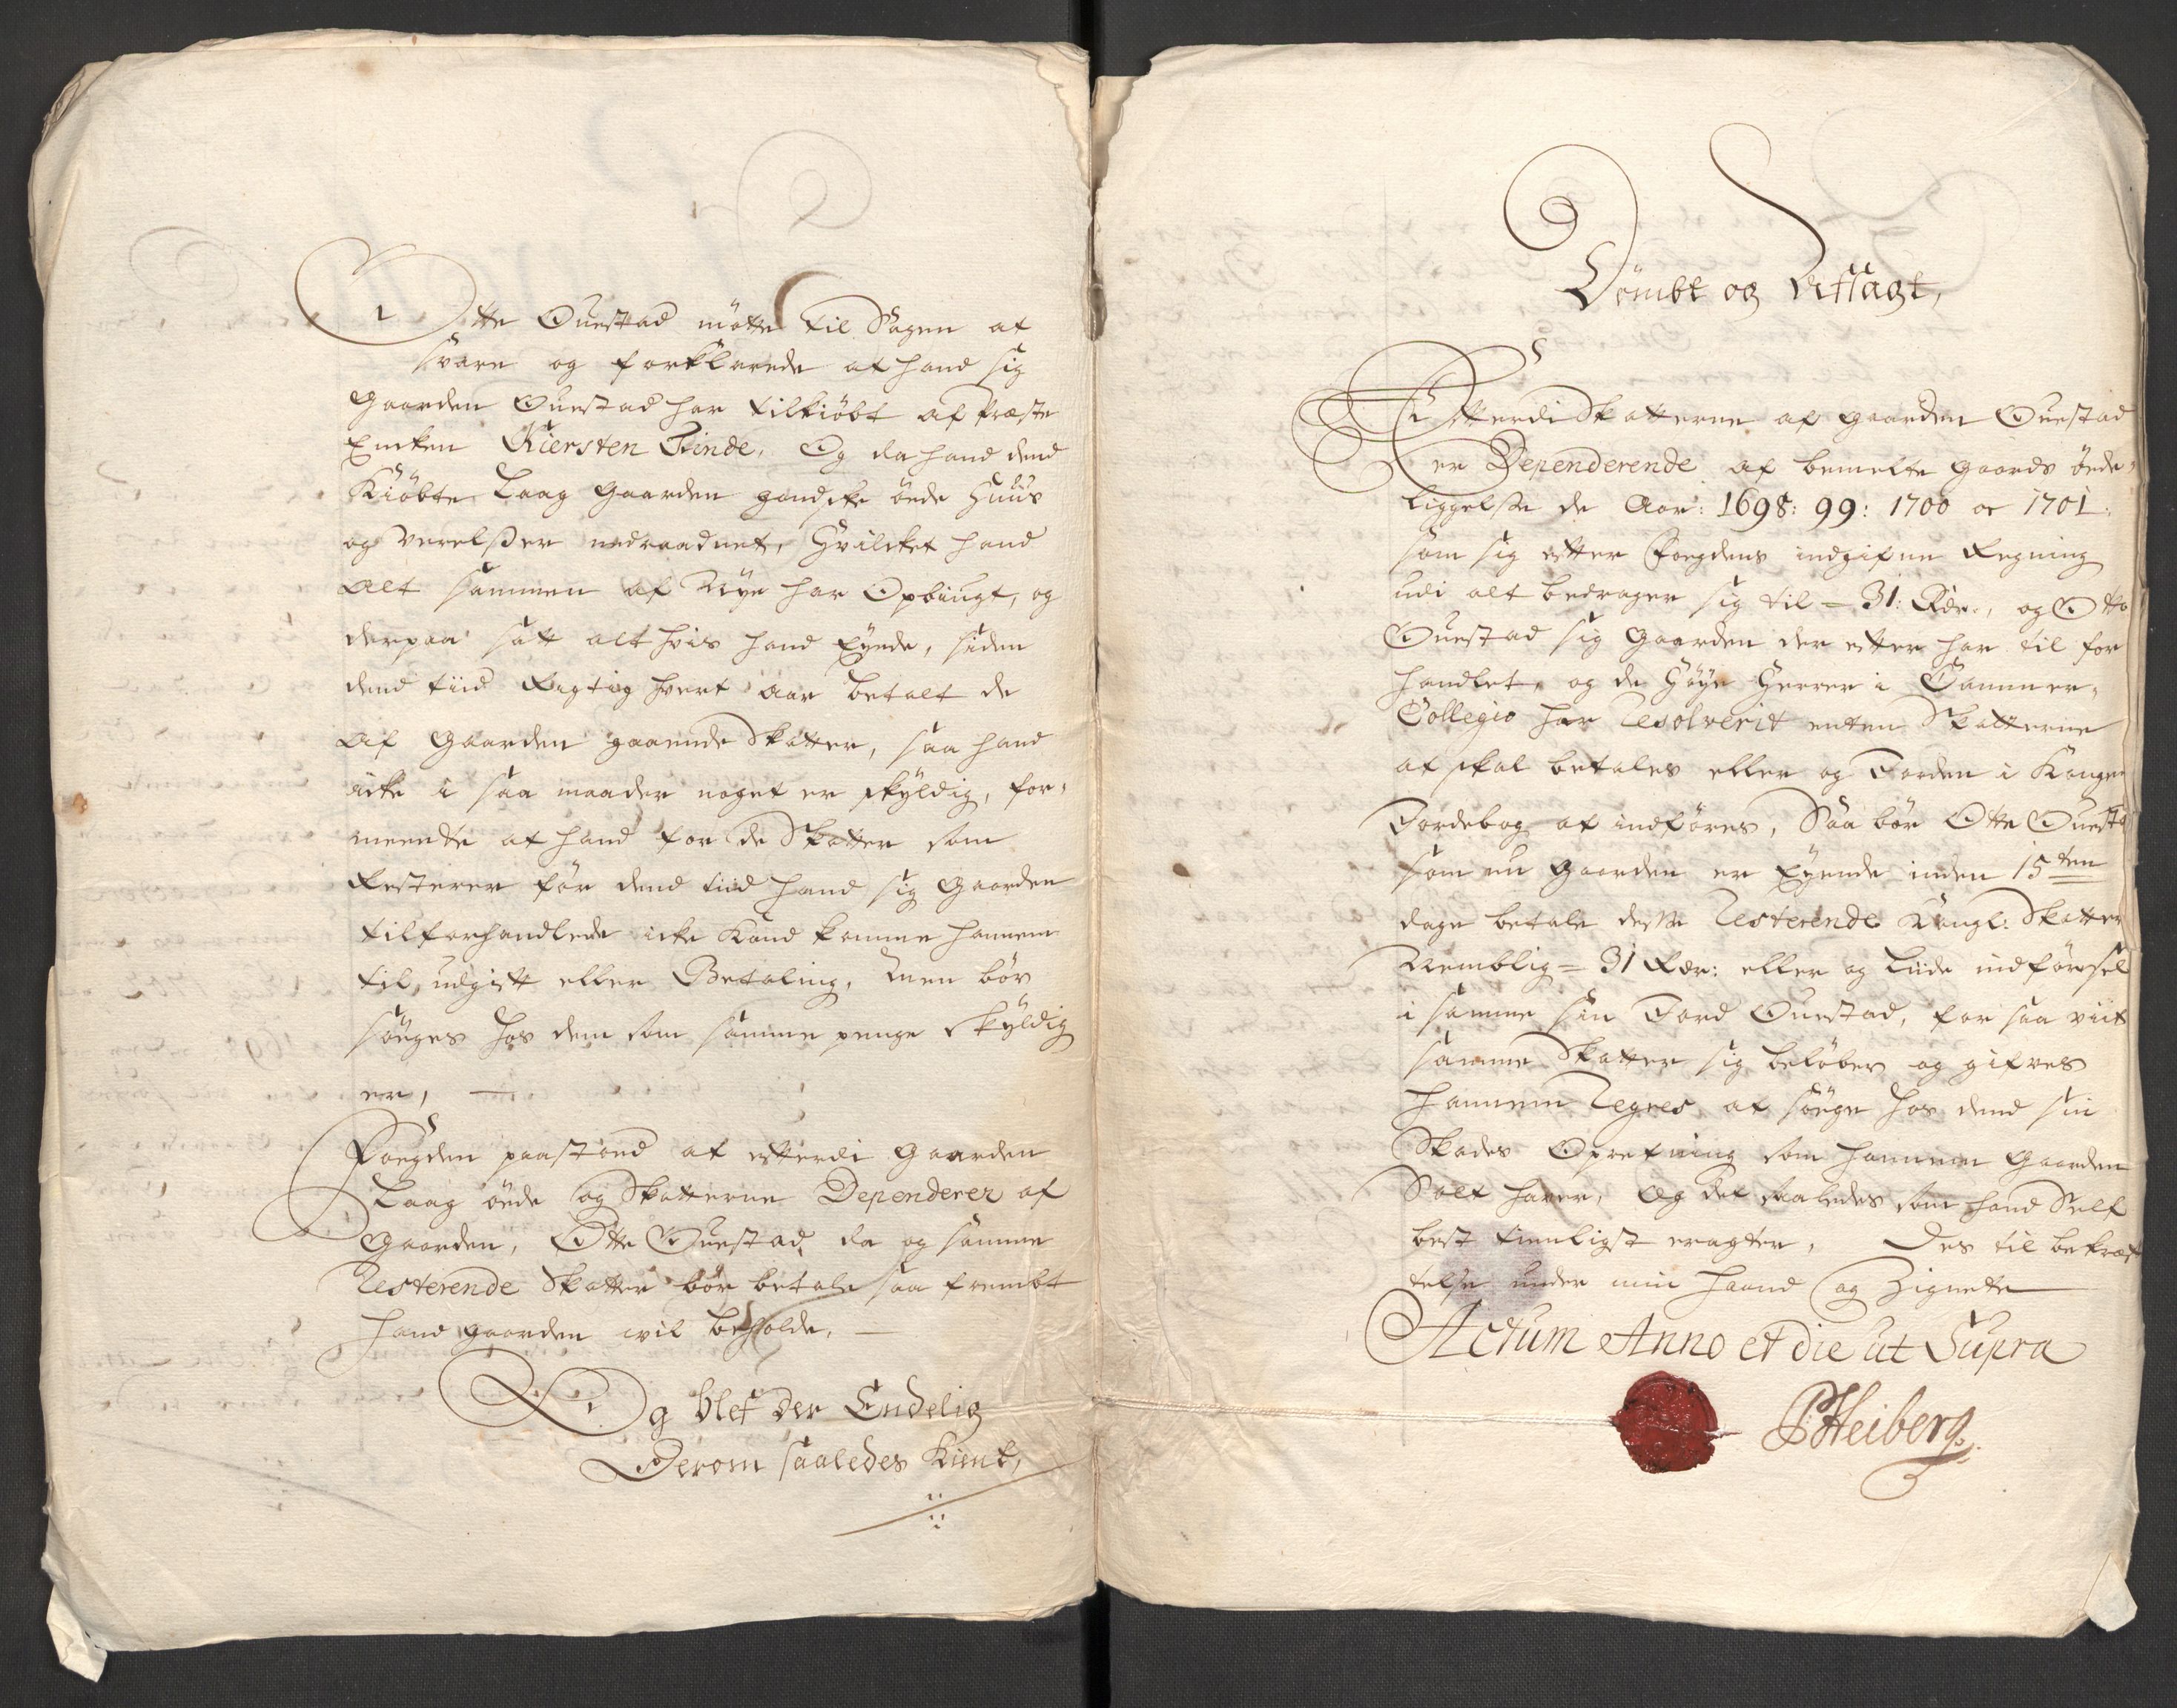 Otte Questad møtte til Sagen at
svare og forklarede at hand sig
Gaarden Questad har tilkiøbt af Præste
Encken Kiersten Finde, Og da hand dend
Kiøbte Laag Gaarden gandske øede Huus
og Verelßer nedraadnet, Hvilcket hand
alt sammen af Nye har Opbiugt, og
derpaa satt alt hvis hand Eyede, siden
dend tiid Rigtig hvert aar betalt de
af Gaarden gaaende Skatter, saa hand
icke i saa maader noget er skyldig, for¬
meente at hand for de Skatter som
Resterer før dend tiid hand sig Gaarden
tilforhandlede icke Kand komme hannem
til, udgift eller Betaling, Men bør
søeges hos dem som samme penge skyldig
er, —
Foegden paastoed at efterdi Gaarden
Laag øede og Skatterne Dependerer af
Gaarden, Otte Questad, da og samme
Resterende Skatter bør betale saa fremt
hand gaarden vil beholde, —
Og blef der Endelig
Derom saaledes Kient,
Dømbt og Afsagt,
Efterdi Skatterne af Gaarden Questad
er Dependerende af bemelte Gaards øede¬
liggelße de Aar: 1698: 99: 1700 oc 1701:
som sig efter Foegdens indgifne Regning
udi alt bedrager sig til = 31: Rdr:, og Otte
Questad sig Gaarden der efter har til for
handlet, og de Høye Herrer i Cammer¬
Collegio har Resolverit enten Skatterne
at skal betales eller og Jorden i Kongens
Jordebog at indføres, Saa bør Otte Questad
som nu Gaarden er Eyende inden 15ten
dage betale desse Resterende Kongl: Skatter
Nemblig = 31 Rdr: eller og Liide indførsel
i samme sin Jord Questad, for saa viit
samme Skatter sig beløber og gifves
hannem Regres at søege hos dend sin
Skades Opretning som hannem Gaarden
Solt hafver, Og det saaledes som hand Self
best tienligst eragter, Des til bekræf
telse under min Haand og Zignete
Actum Anno et die ut Supra
P Heiberg